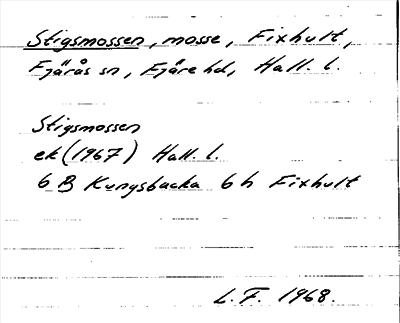 Stigsmossen, mosse, Fixhult,
Fjärås sn, Fjäre hd, Hall. l.
Stigsmossen
ek (1967) Hall. l.
6 B Kungsbacka 6 h Fixhult
L. F. 1968.